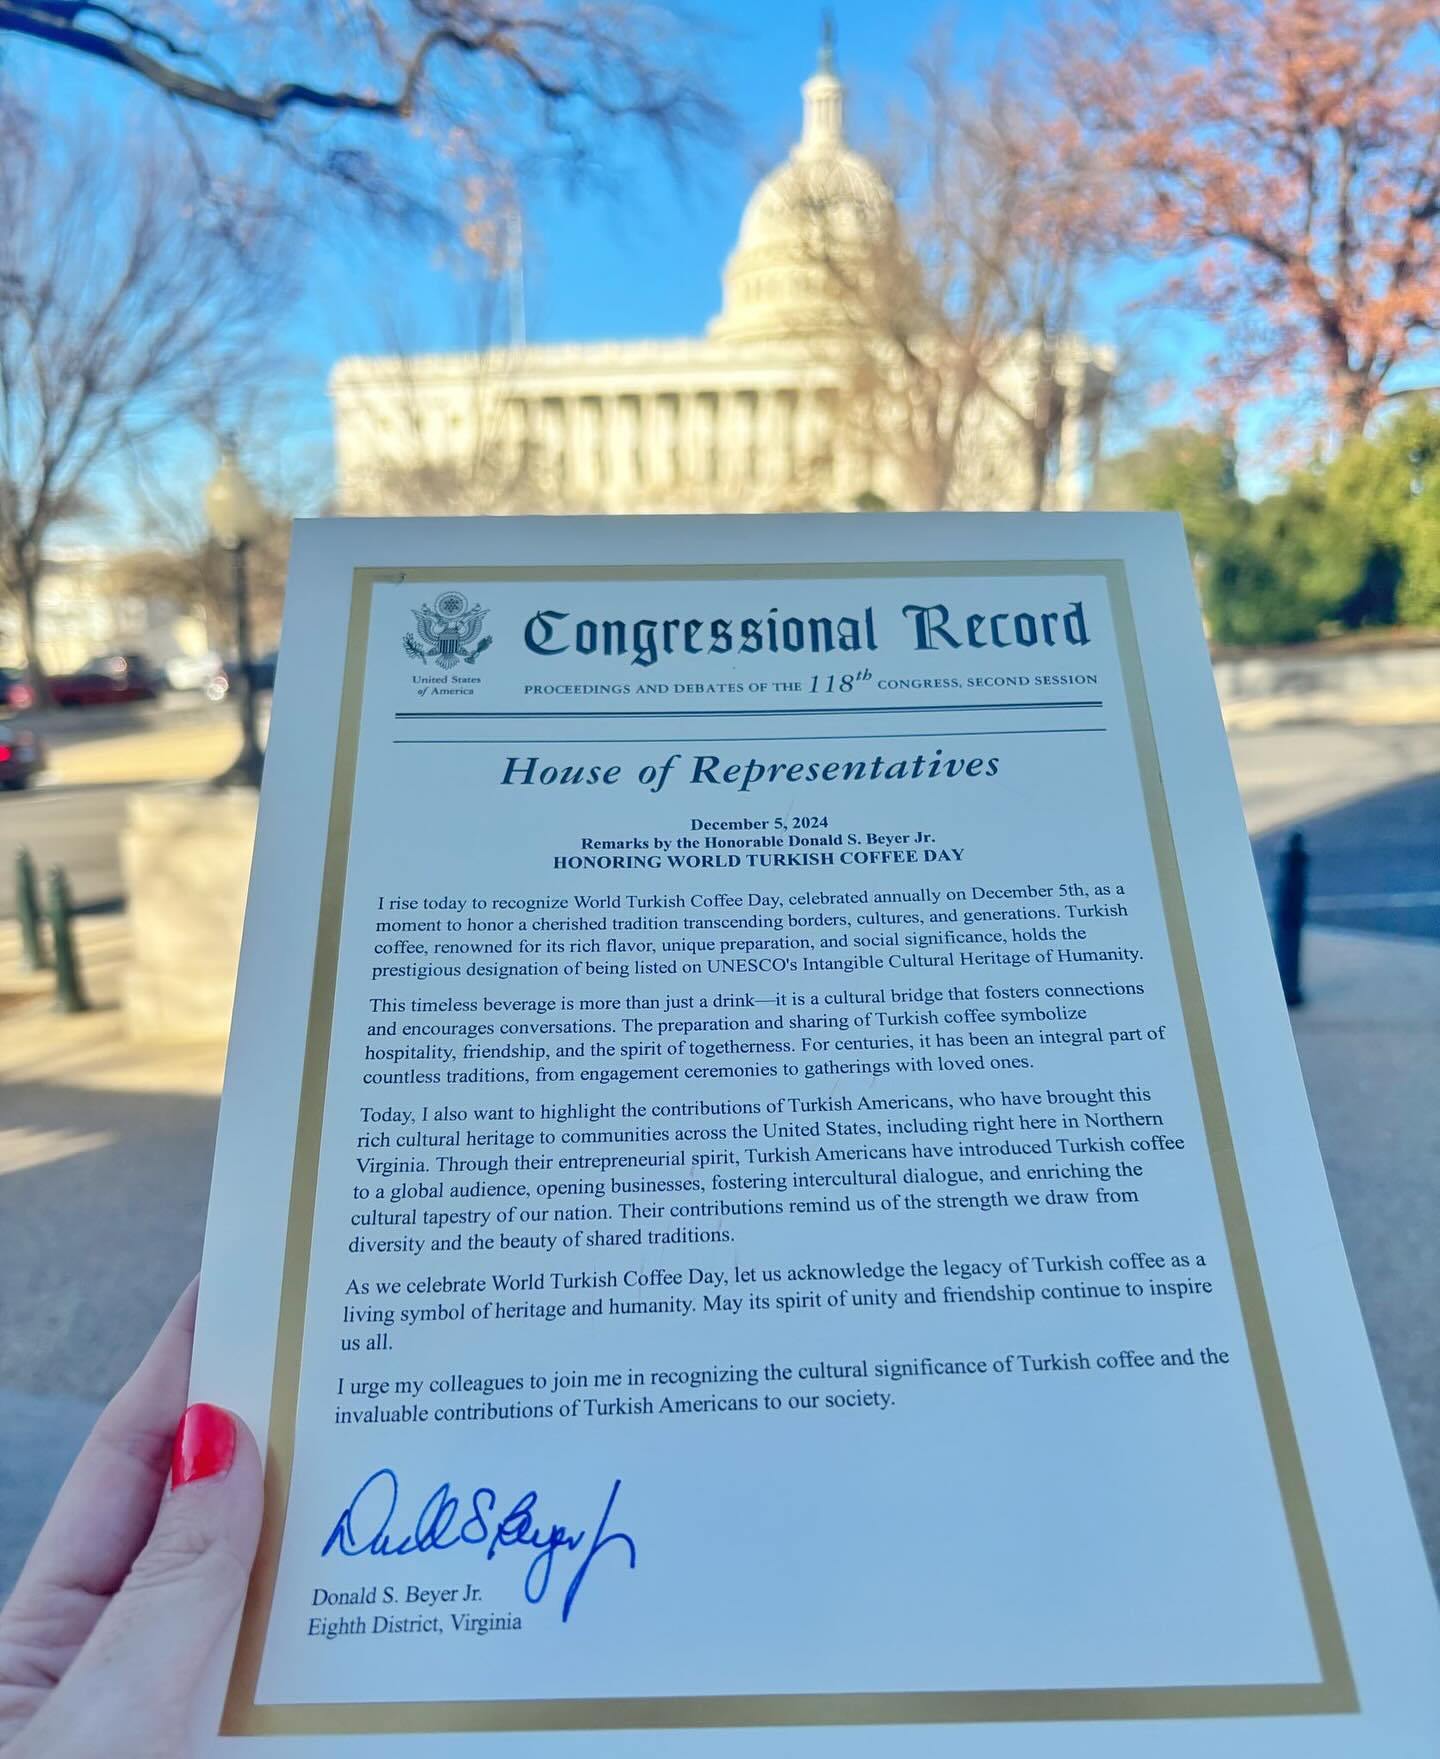 Congressional Record
United States
of America
PROCEEDINGS AND DEBATES OF THE 118th CONGRESS, SECOND SESSION
House of Representatives
December 5, 2024
Remarks by the Honorable Donald S. Beyer Jr.
HONORING WORLD TURKISH COFFEE DAY
I rise today to recognize World Turkish Coffee Day, celebrated annually on December 5th, as a
moment to honor a cherished tradition transcending borders, cultures, and generations. Turkish
coffee, renowned for its rich flavor, unique preparation, and social significance, holds the
prestigious designation of being listed on UNESCO's Intangible Cultural Heritage of Humanity.
This timeless beverage is more than just a drink—it is a cultural bridge that fosters connections
and encourages conversations. The preparation and sharing of Turkish coffee symbolize
hospitality, friendship, and the spirit of togetherness. For centuries, it has been an integral part of
countless traditions, from engagement ceremonies to gatherings with loved ones.
Today, I also want to highlight the contributions of Turkish Americans, who have brought this
rich cultural heritage to communities across the United States, including right here in Northern
Virginia. Through their entrepreneurial spirit, Turkish Americans have introduced Turkish coffee
to a global audience, opening businesses, fostering intercultural dialogue, and enriching the
cultural tapestry of our nation. Their contributions remind us of the strength we draw from
diversity and the beauty of shared traditions.
As we celebrate World Turkish Coffee Day, let us acknowledge the legacy of Turkish coffee as a
living symbol of heritage and humanity. May its spirit of unity and friendship continue to inspire
us all.
I urge my colleagues to join me in recognizing the cultural significance of Turkish coffee and the
invaluable contributions of Turkish Americans to our society.
Donald S Beyer Jr
Donald S. Beyer Jr.
Eighth District, Virginia